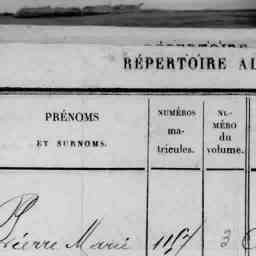 RÉPERTOIRE AL
PRÉNOMS
ET SURNOMS.
NUMÉROS
ma-
tricules.
NU-
MÉRO
du
volume.
Pierre Marie 1157 33